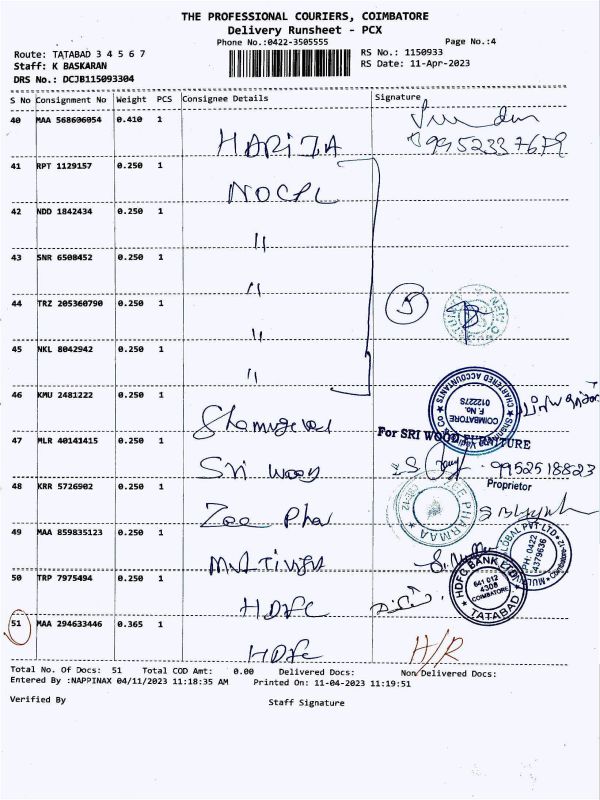 THE PROFESSIONAL COURIERS, COIMBATORE
Delivery Runsheet - PCX
Phone No.:0422-3505555
Page No.:4
Route: TATABAD 3 4 5 6 7
RS No.: 1150933
Staff: K BASKARAN
RS Date: 11-Apr-2023
DRS No.: DCJB115093304
S No Consignment No Weight PCS Consignee Details Signature
40 MAA 568606054 0.410 1
HARIJA 9952337679
41 RPT 1129157 0.250 1
NOCPL
42 NDD 1842434 0.250 1
"
43 SNR 6508452 0.250 1
"
44 TRZ 205360790 0.250 1
" 5
45 NKL 8042942 0.250 1
"
46 KMU 2481222 0.250 1
CHARTERED ACCOUNTANTS
COIMBATORE
F. No.
012227S
47 MLR 40141415 0.250 1
For SRI WOOD FURNITURE
Sri wood 9952518823
48 KRR 5726902 0.250 1
Proprietor
Zee Pha
PHARMAA
49 MAA 859835123 0.250 1
GLOBAL PVT LTD
PH: 0422
4379636
50 TRP 7975494 0.250 1
HDFC BANK LTD
641 012
4308
COIMBATORE
TATABAD
HDFC
51 MAA 294633446 0.365 1
HDFC H/R
Total No. Of Docs: 51 Total COD Amt: 0.00 Delivered Docs: Non Delivered Docs:
Entered By :NAPPINAX 04/11/2023 11:18:35 AM Printed On: 11-04-2023 11:19:51
Verified By
Staff Signature